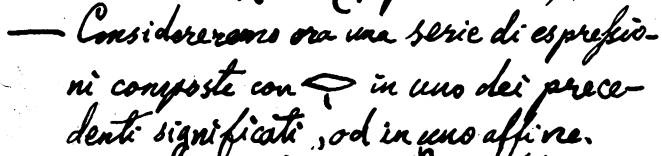 — Considereremo ora una serie di espressio-
ni composte con 𓂋 in uno dei prece-
denti significati, od in uno affine.